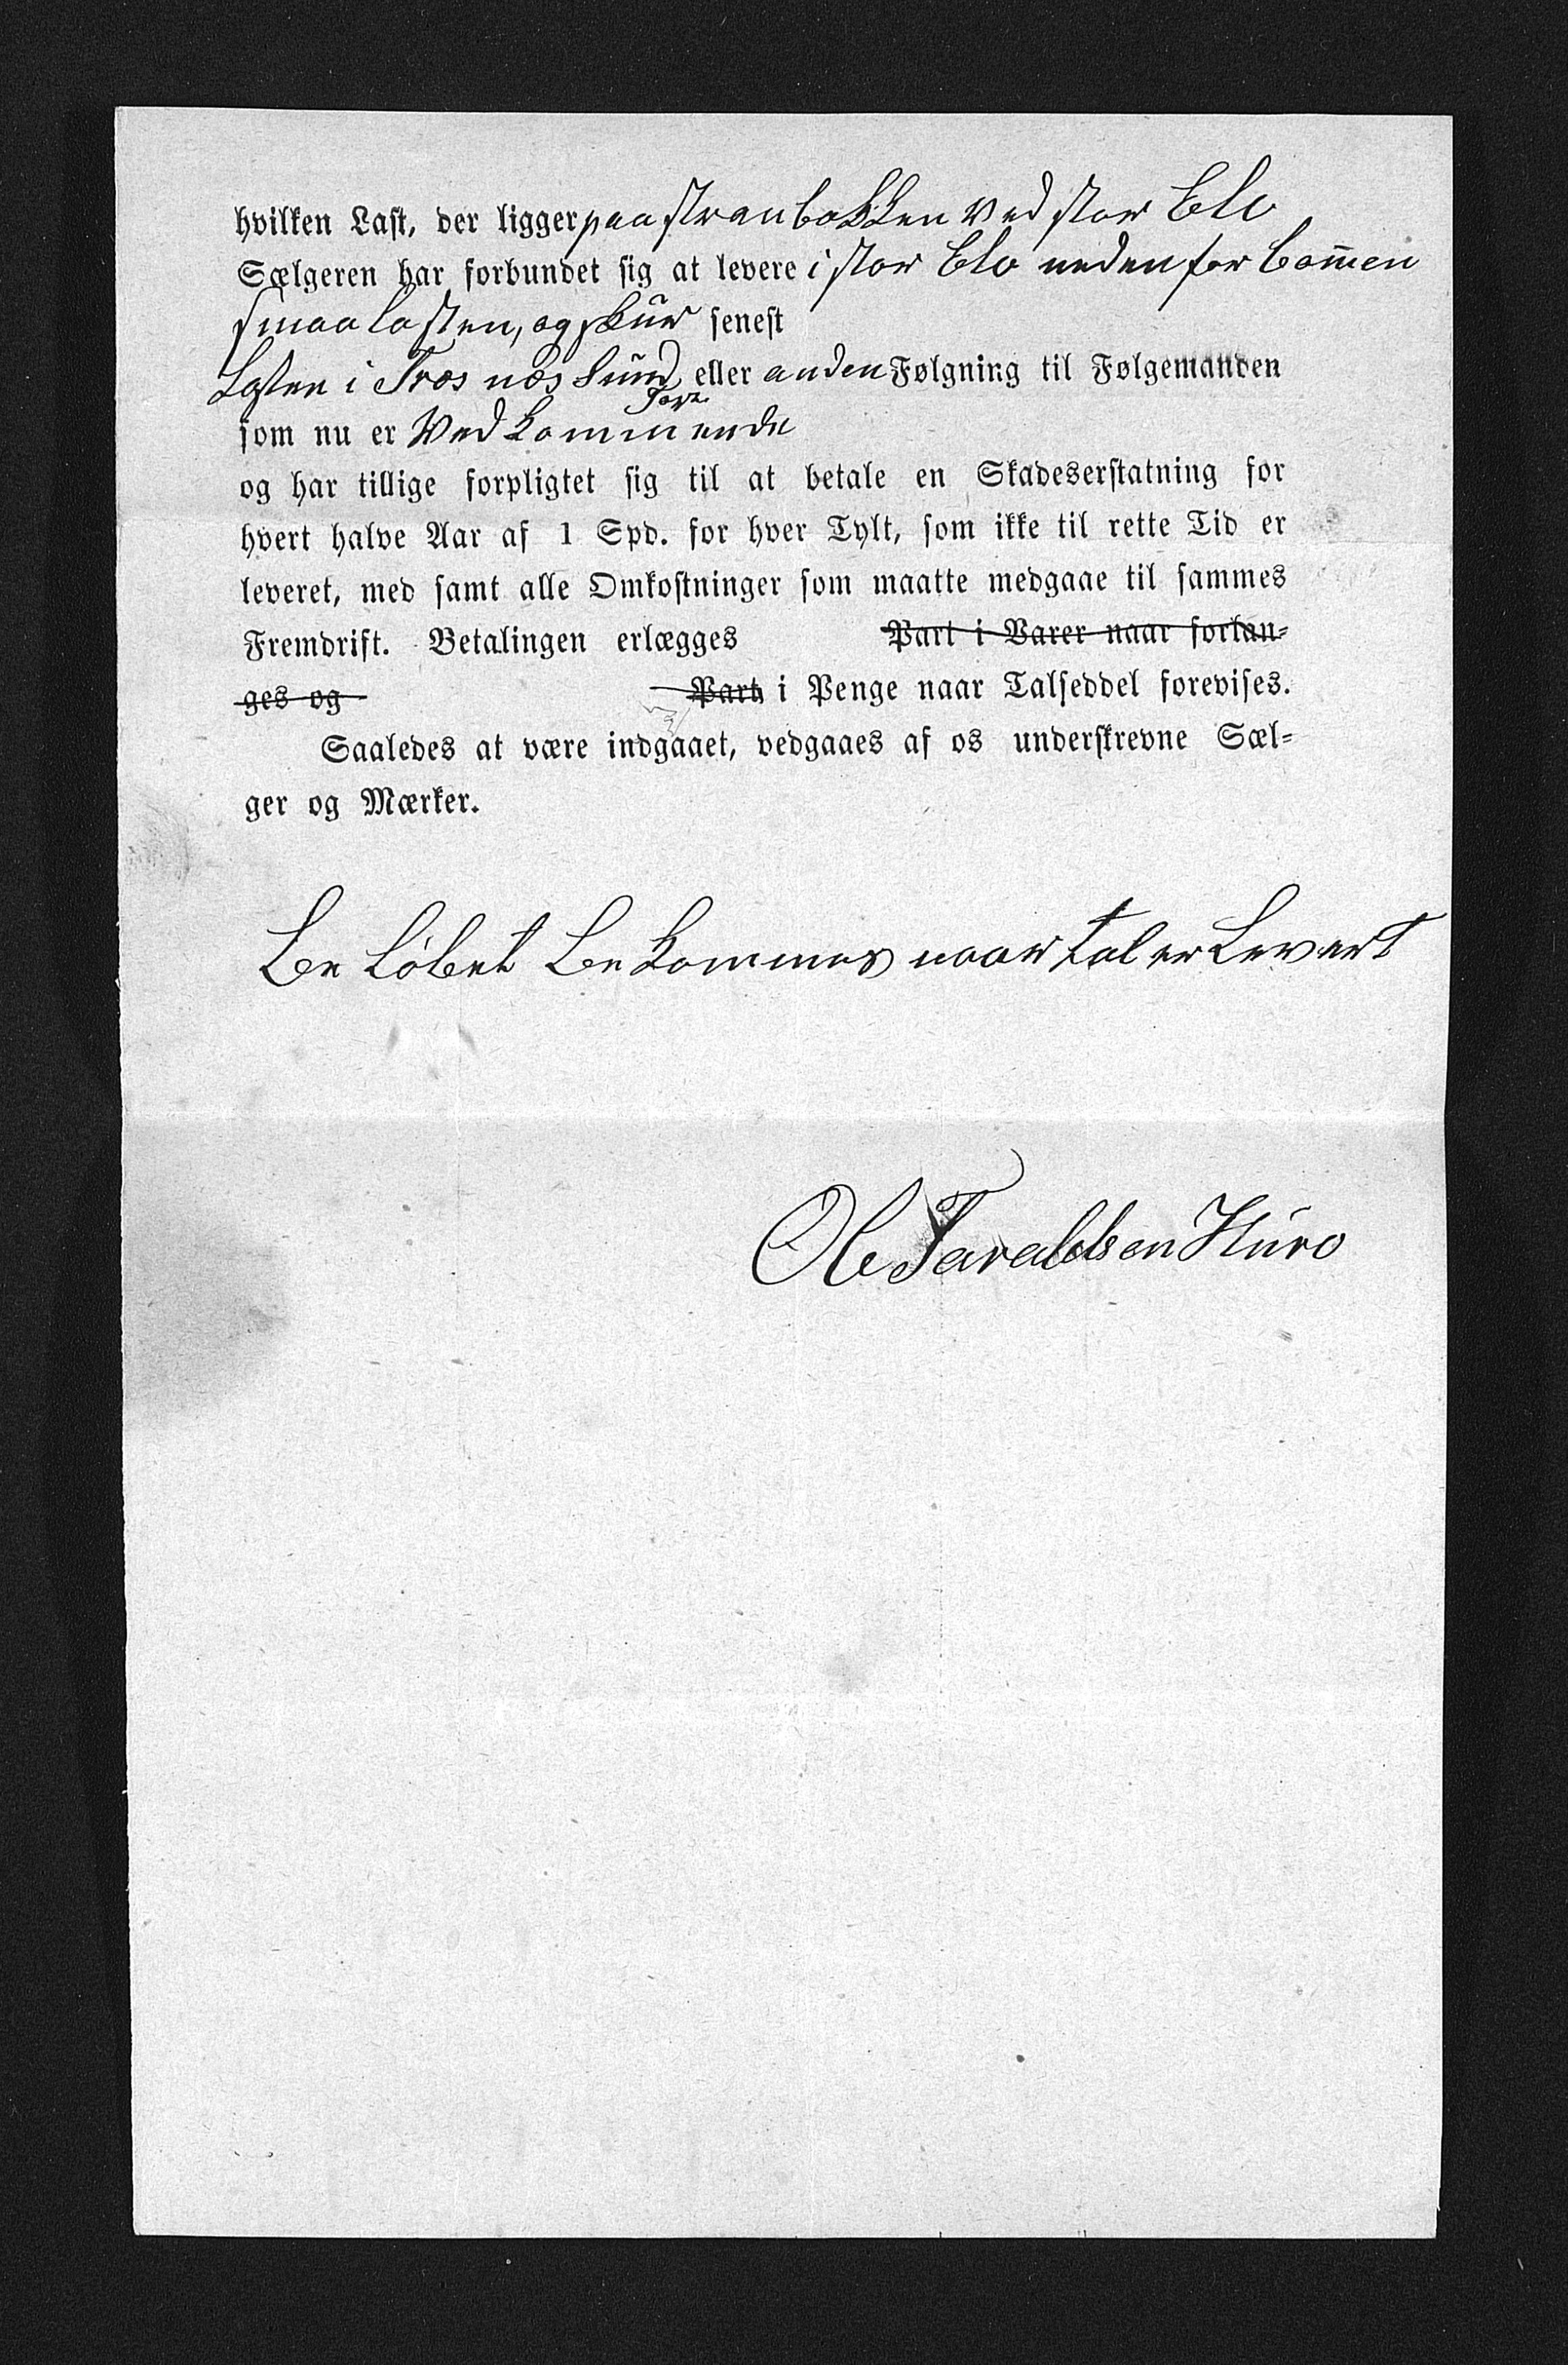 hvilken Last, der ligger paa stranbakken ved stor Elv
Sælgeren har forbundet sig at levere i stor Elv nedenfor bom̄en
smaalasten, og skur senest
Lasten i Træs næs Sund eller anden Følgning til Følgemanden
som nu er Vedkommende
og har tillige forpligtet sig til at betale en Skadeserstatning for
hvert halve Aar af 1 Spd. for hver Tylt, som ikke til rette Tid er
leveret, med samt alle Omkostninger som maatte medgaae til sammes
Fremdrift. Betalingen erlægges Part i Varer naar forlan-
ges og Part i Penge naar Talseddel forevises.
Saaledes at være indgaaet, vedgaaes af os underskrevne Sæl-
ger og Mærker.
Be løbet Be kommes naar tal er Levert
Ole Taraldsen Huro